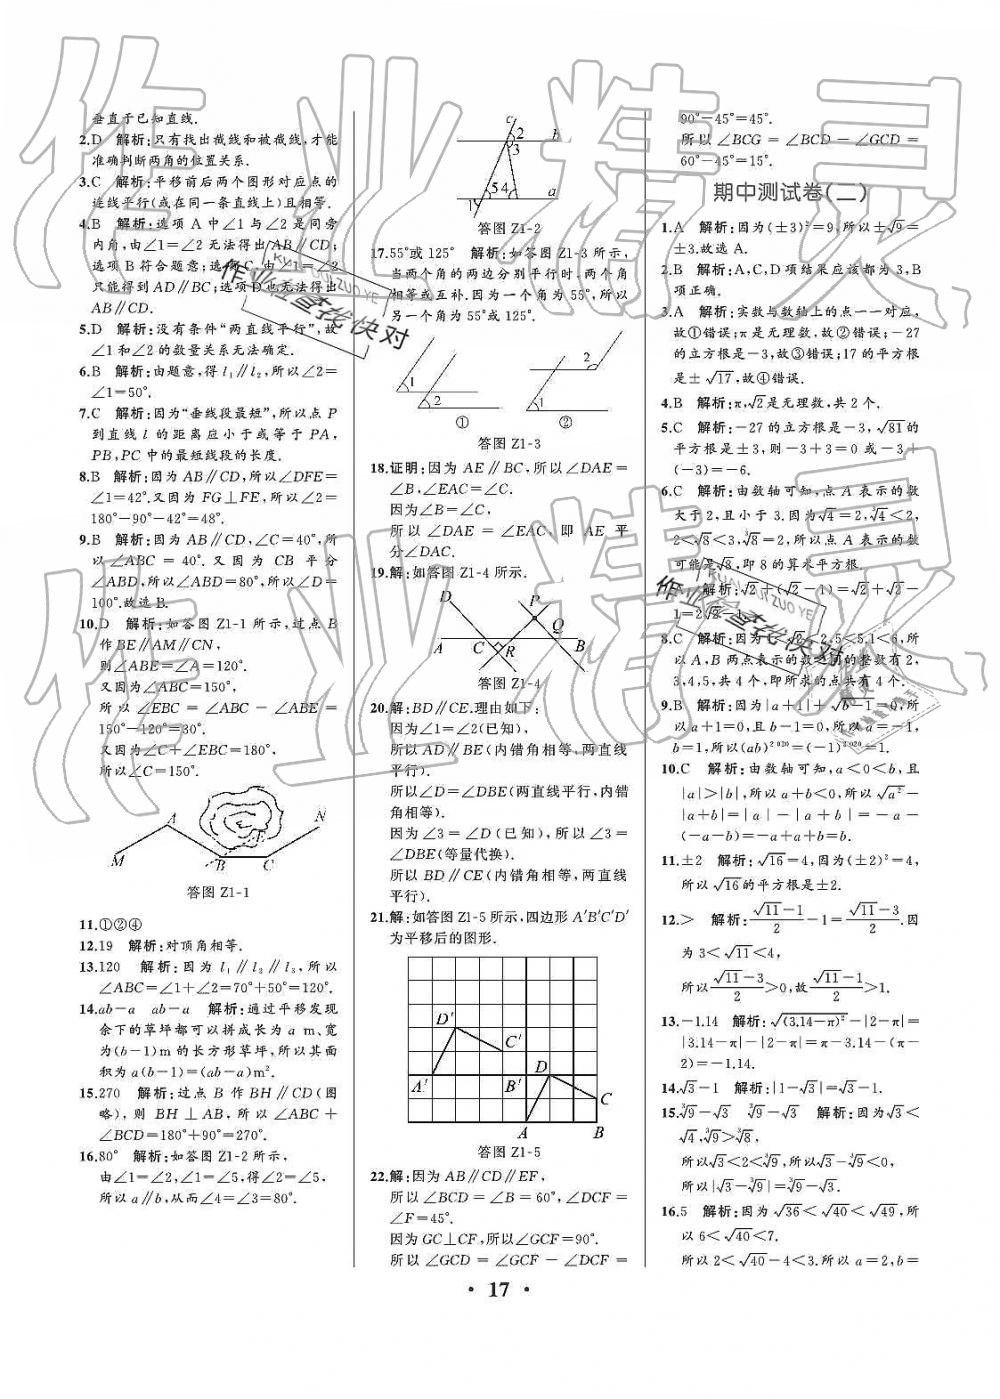 垂直于已知直线.
2.D 解析:只有找出截线和被截线,才能
准确判断两角的位置关系.
3.C 解析:平移前后两个图形对应点的
连线平行(或在同一条直线上)且相等.
4.B 解析:选项 A 中∠1 与∠2 是同旁
内角,由∠1=∠2 无法得出 AB∥CD;
选项 B 符合题意;选项 C 由∠1=∠2
只能得到 AD∥BC;选项 D 也无法得出
AB∥CD.
5.D 解析:没有条件“两直线平行”,故
∠1和∠2的数量关系无法确定.
6.B 解析:由题意,得 l₁∥l₂,所以∠2=
∠1=50°.
7.C 解析:因为“垂线段最短”,所以点 P
到直线 l 的距离应小于或等于 PA,
PB,PC 中的最短线段的长度.
8.B 解析:因为 AB∥CD,所以∠DFE=
∠1=42°.又因为 FG⊥FE,所以∠2=
180°-90°-42°=48°.
9.B 解析:因为 AB∥CD,∠C=40°,所
以∠ABC=40°.又因为 CB 平分
∠ABD,所以∠ABD=80°,所以∠D=
100°.故选 B.
10.D 解析:如答图 Z1-1 所示,过点 B
作 BE∥AM∥CN,
则∠ABE=∠A=120°.
又因为∠ABC=150°,
所以∠EBC=∠ABC-∠ABE=
150°-120°=30°.
又因为∠C+∠EBC=180°,
所以∠C=150°.
M A B C N E
答图 Z1-1
11.①②④
12.19 解析:对顶角相等.
13.120 解析:因为 l₁∥l₂∥l₃,所以
∠ABC=∠1+∠2=70°+50°=120°.
14.ab-a ab-a 解析:通过平移发现
余下的草坪都可以拼成长为 a m、宽
为(b-1)m 的长方形草坪,所以其面
积为 a(b-1)=(ab-a)m².
15.270 解析:过点 B 作 BH∥CD(图
略),则 BH⊥AB,所以∠ABC+
∠BCD=180°+90°=270°.
16.80° 解析:如答图 Z1-2 所示,
由∠1=∠2,∠1=∠5,得∠2=∠5,
所以 a∥b,从而∠4=∠3=80°.
c 2 b 3 5 4 a 1
答图 Z1-2
17.55°或 125° 解析:如答图 Z1-3 所示,
当两个角的两边分别平行时,两个角
相等或互补.因为一个角为 55°,所以
另一个角为 55°或 125°.
1 2 ① 1 2 ②
答图 Z1-3
18.证明:因为 AE∥BC,所以∠DAE=
∠B,∠EAC=∠C.
因为∠B=∠C,
所以∠DAE=∠EAC,即 AE 平
分∠DAC.
19.解:如答图 Z1-4 所示.
D P Q A C R B
答图 Z1-4
20.解:BD∥CE.理由如下:
因为∠1=∠2(已知),
所以 AD∥BE(内错角相等,两直线
平行).
所以∠D=∠DBE(两直线平行,内错
角相等).
因为∠3=∠D(已知),所以∠3=
∠DBE(等量代换).
所以 BD∥CE(内错角相等,两直线
平行).
21.解:如答图 Z1-5 所示,四边形 A′B′C′D′
为平移后的图形.
D′ C′ A′ B′ D C A B
答图 Z1-5
22.解:因为 AB∥CD∥EF,
所以∠BCD=∠B=60°,∠DCF=
∠F=45°.
因为 GC⊥CF,所以∠GCF=90°.
所以∠GCD=∠GCF-∠DCF=
90°-45°=45°.
所以∠BCG=∠BCD-∠GCD=
60°-45°=15°.
期中测试卷(二)
1.A 解析:因为(±3)²=9,所以±√9=
±3.故选 A.
2.B 解析:A,C,D 项结果应该都为 3,B
项正确.
3.A 解析:实数与数轴上的点一一对应,
故①错误;π是无理数,故②错误;-27
的立方根是-3,故③错误;17的平方根
是±√17,故④错误.
4.B 解析:π,√2是无理数,共 2 个.
5.C 解析:-27 的立方根是-3,√81的
平方根是±3,则-3+3=0 或-3+
(-3)=-6.
6.C 解析:由数轴可知,点 A 表示的数
大于 2,且小于 3.因为√4=2,∛4<2,
2<√8<3,∛8=2,所以点 A 表示的数
可能是√8,即 8 的算术平方根.
解析:√2+(√2-1)=√2+√2-
1=2√2-1.
8.C 解析:因为1<√2<2,5<5.1<6,所
以 A,B 两点表示的数之间的整数有 2,
3,4,5,共 4 个,即所求的点共有 4 个.
9.B 解析:因为|a+1|+√b-1=0,所
以 a+1=0,且 b-1=0,所以 a=-1,
b=1,所以(ab)²⁰²⁰=(-1)²⁰²⁰=1.
10.C 解析:由数轴可知,a<0<b,且
|a|>|b|,所以 a+b<0,所以√a²-
|a+b|=|a|-|a+b|=-a-
(-a-b)=-a+a+b=b.
11.±2 解析:√16=4,因为(±2)²=4,
所以√16的平方根是±2.
12.> 解析:(√11-1)/2-1=(√11-3)/2.因
为 3<√11<4,
所以(√11-3)/2>0,故(√11-1)/2>1.
13.-1.14 解析:√(3.14-π)²-|2-π|=
|3.14-π|-|2-π|=π-3.14-(π-
2)=-1.14.
14.√3-1 解析:|1-√3|=√3-1.
15.∛9-√3 ∛9-√3 解析:因为√3<
√4,∛9>∛8,
所以√3<2<∛9,所以√3-∛9<0,
所以|√3-∛9|=∛9-√3.
16.5 解析:因为√36<√40<√49,所
以 6<√40<7.
所以 2<√40-4<3.所以 a=2,b=
• 17 •
作业精灵
作业精灵
作业检查找快对
作业检查找快对